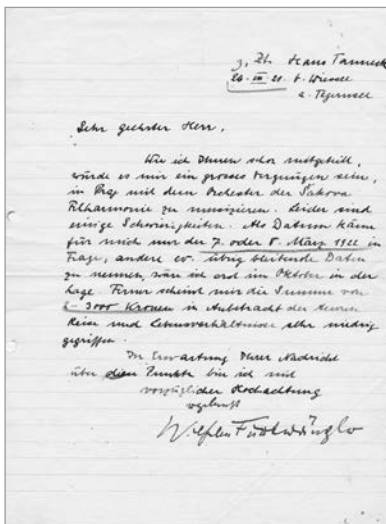 z. Zt. Haus Tanneck
20. III. 21. b. Wiessee
a. Tegernsee
Sehr geehrter Herr,
Wie ich Ihnen schon mitgeteilt,
würde es mir ein grosses Vergnügen sein,
in Prag mit dem Orchester der Sakova
Filharmonie zu musizieren. Leider sind
einige Schwierigkeiten. Als Datum käme
für mich nur der 7. oder 8. März 1922 in
Frage, andere ev. übrig bleibende Daten
zu nennen, wäre ich erst im Oktober in der
Lage. Ferner scheint mir die Summe von
3000 Kronen in Anbetracht der teuren
Reise und Lebensverhältnisse sehr niedrig
gegriffen.
In Erwartung Ihrer Nachricht
über diese Punkte bin ich mit
vorzüglicher Hochachtung
ergebenst
Wilhelm Furtwängler